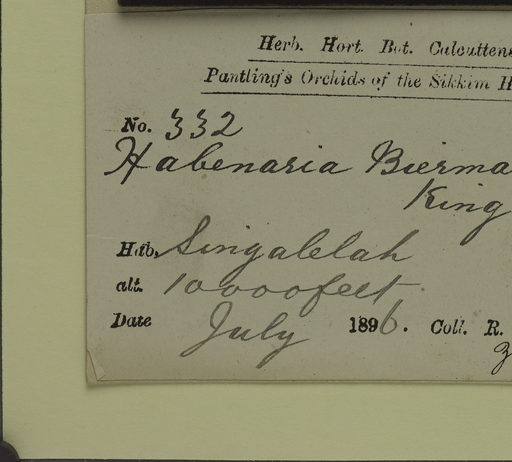 Herb. Hort. Bot. Calcuttens
Pantling's Orchids of the Sikkim H
No. 332
Habenaria Bierma
King
Hab. Singalelah
alt. 10000 feet.
Date July 1896. Coll. R.